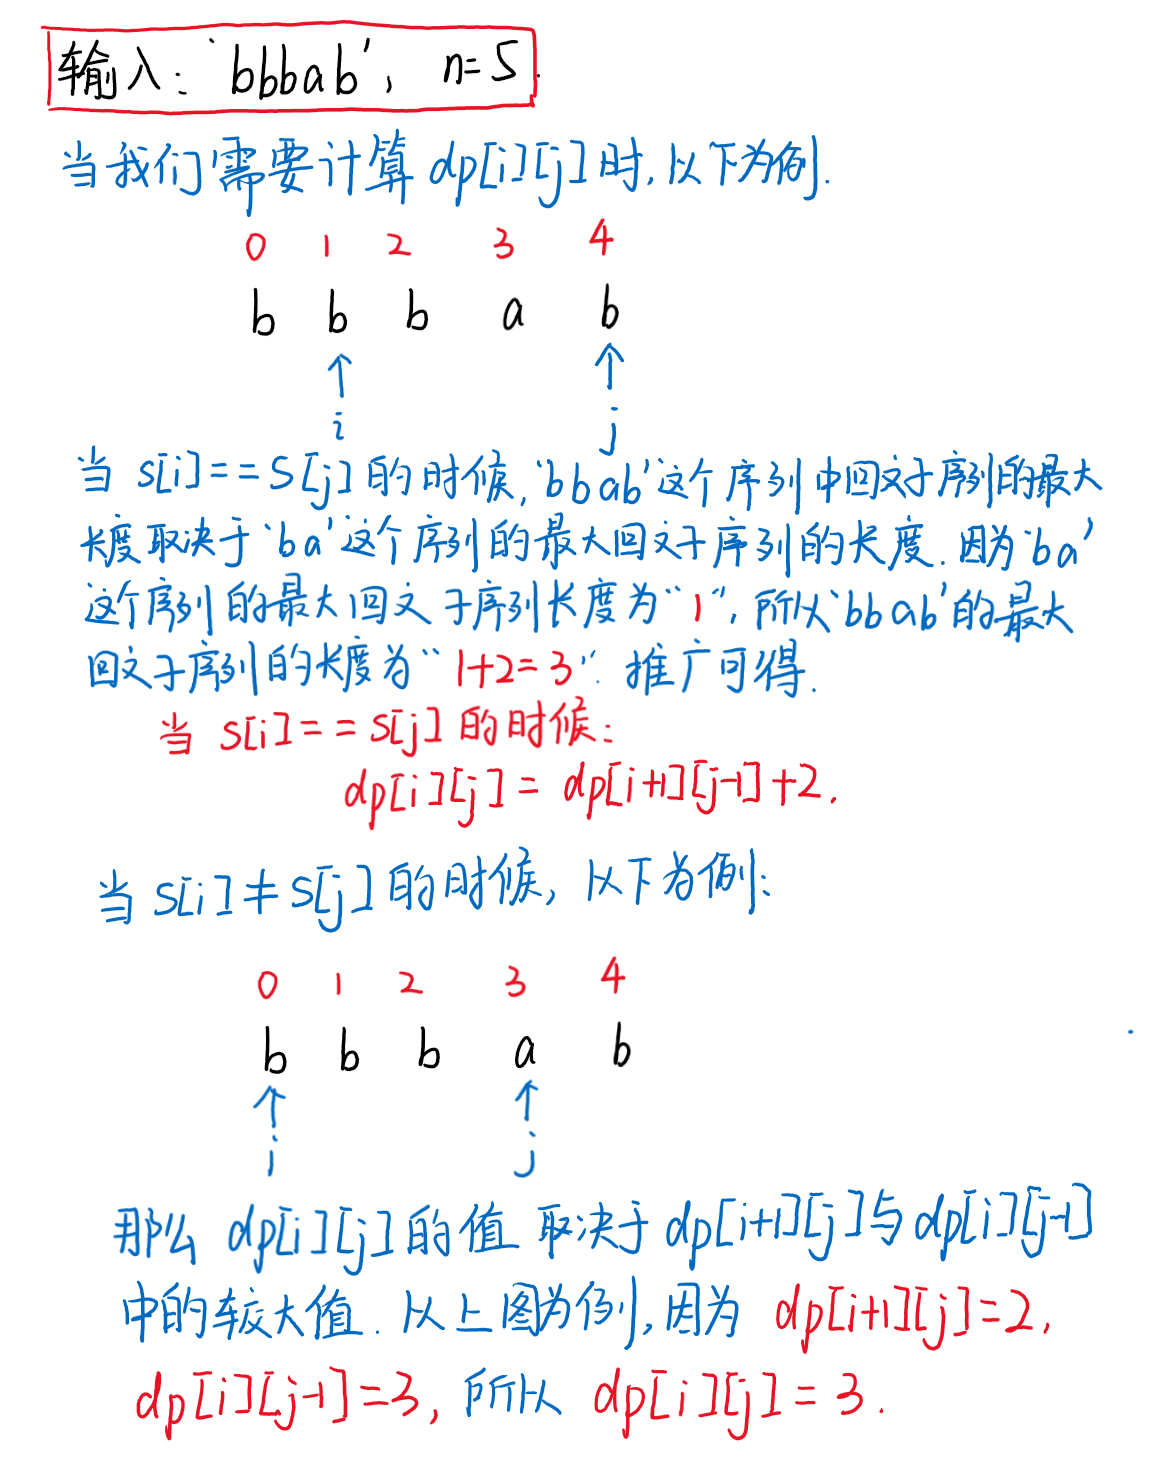 输入: 'bbbab', n=5.
当我们需要计算 dp[i][j]时, 以下为例.
0 1 2 3 4
b b b a b
↑ ↑
i j
当 s[i]==S[j]的时候, 'bbab'这个序列中回文子序列的最大
长度取决于'ba'这个序列的最大回文子序列的长度. 因为'ba'
这个序列的最大回文子序列长度为"1", 所以'bbab'的最大
回文子序列的长度为"1+2=3". 推广可得.
当 s[i]==s[j] 的时候:
dp[i][j] = dp[i+1][j-1]+2.
当 s[i]≠s[j]的时候, 以下为例:
0 1 2 3 4
b b b a b
↑ ↑
i j
那么 dp[i][j]的值 取决于dp[i+1][j]与dp[i][j-1]
中的较大值. 以上图为例, 因为 dp[i+1][j]=2,
dp[i][j-1]=3, 所以 dp[i][j]=3.